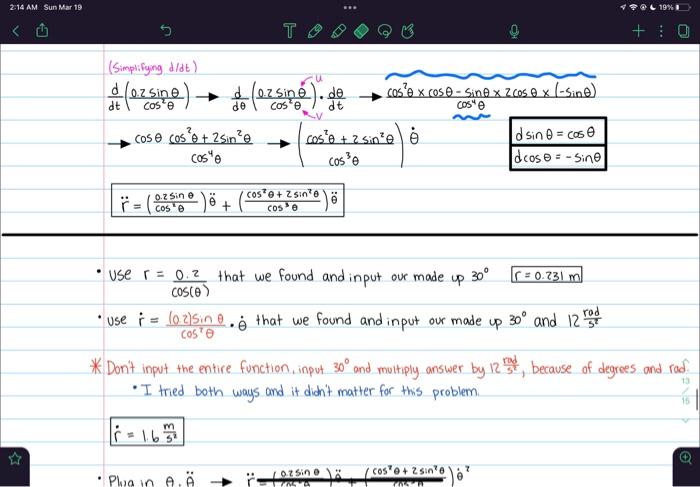 2:14 AM Sun Mar 19
19%
(Simplifying d/dt)
d/dt (0.2 sinθ / cos²θ) → d/dθ (0.2 sinθ / cos²θ) · dθ/dt → cos²θ × cosθ - sinθ × 2cosθ × (-sinθ) / cos⁴θ
u
v
→ cosθ cos²θ + 2sin²θ / cos⁴θ → (cos²θ + 2sin²θ / cos³θ) θ̇
d sinθ = cosθ
d cosθ = - sinθ
r̈ = (0.2 sinθ / cos²θ) θ̈ + (cos²θ + 2sin²θ / cos³θ) θ̈
• use r = 0.2 / cos(θ) that we found and input our made up 30° r = 0.231 m
• use ṙ = (0.2)sinθ / cos²θ · θ̇ that we found and input our made up 30° and 12 rad/s²
* Don't input the entire function, input 30° and multiply answer by 12 rad/s², because of degrees and rad.
13
• I tried both ways and it didn't matter for this problem.
15
ṙ = 1.6 m/s²
• Plug in θ, θ̈ → r̈ = (0.2 sinθ / cos²θ) θ̈ + (cos²θ + 2sin²θ / cos³θ) θ̇²